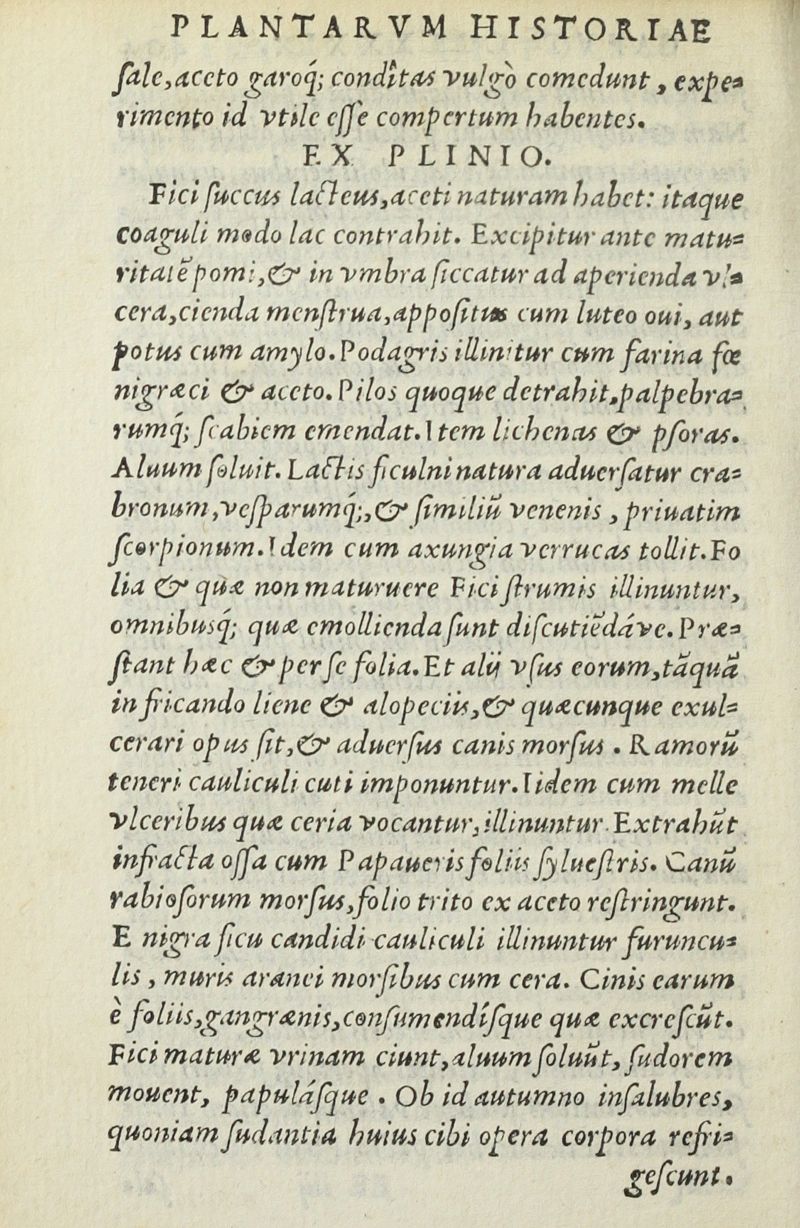 PLANTARVM HISTORIAE
ſale, aceto garoq́; conditas vulgò comedunt, expe-
rimento id vtile eſſe compertum habentes.
EX PLINIO.
Fici ſuccus lacteus, aceti naturam habet: itaque
coaguli modo lac contrahit. Excipitur ante matu-
ritatē pomi, & in vmbra ſiccatur ad aperienda vl-
cera, cienda menſtrua, appoſitus cum luteo oui, aut
potus cum amylo. Podagris illinitur cum farina fœ
nigræci & aceto. Pilos quoque detrahit, palpebra-
rumq́; ſcabiem emendat. Item lichenas & pſoras.
Aluum ſoluit. Lactis ficulni natura aduerſatur cra-
bronum, veſparumq́;, & ſimiliū venenis, priuatim
ſcorpionum. Idem cum axungia verrucas tollit. Fo
lia & quæ non maturuere Fici ſtrumis illinuntur,
omnibusq́; quæ emollienda ſunt diſcutiēdáve. Præ-
ſtant hæc & per ſe folia. Et alij vſus eorum, tāquā
in fricando liene & alopeciis, & quæcunque exul-
cerari opus ſit, & aduerſus canis morſus. Ramorū
teneri cauliculi cuti imponuntur. Iidem cum melle
vlceribus quæ ceria vocantur, illinuntur. Extrahūt
infracta oſſa cum Papaueris foliis ſylueſtris. Canū
rabioſorum morſus, folio trito ex aceto reſtringunt.
E nigra ficu candidi cauliculi illinuntur furuncu-
lis, muris aranei morſibus cum cera. Cinis earum
è foliis, gangrænis, conſumendíſque quæ excreſcūt.
Fici maturæ vrinam ciunt, aluum ſoluūt, ſudorem
mouent, papuláſque. Ob id autumno inſalubres,
quoniam ſudantia huius cibi opera corpora refri-
geſcunt.